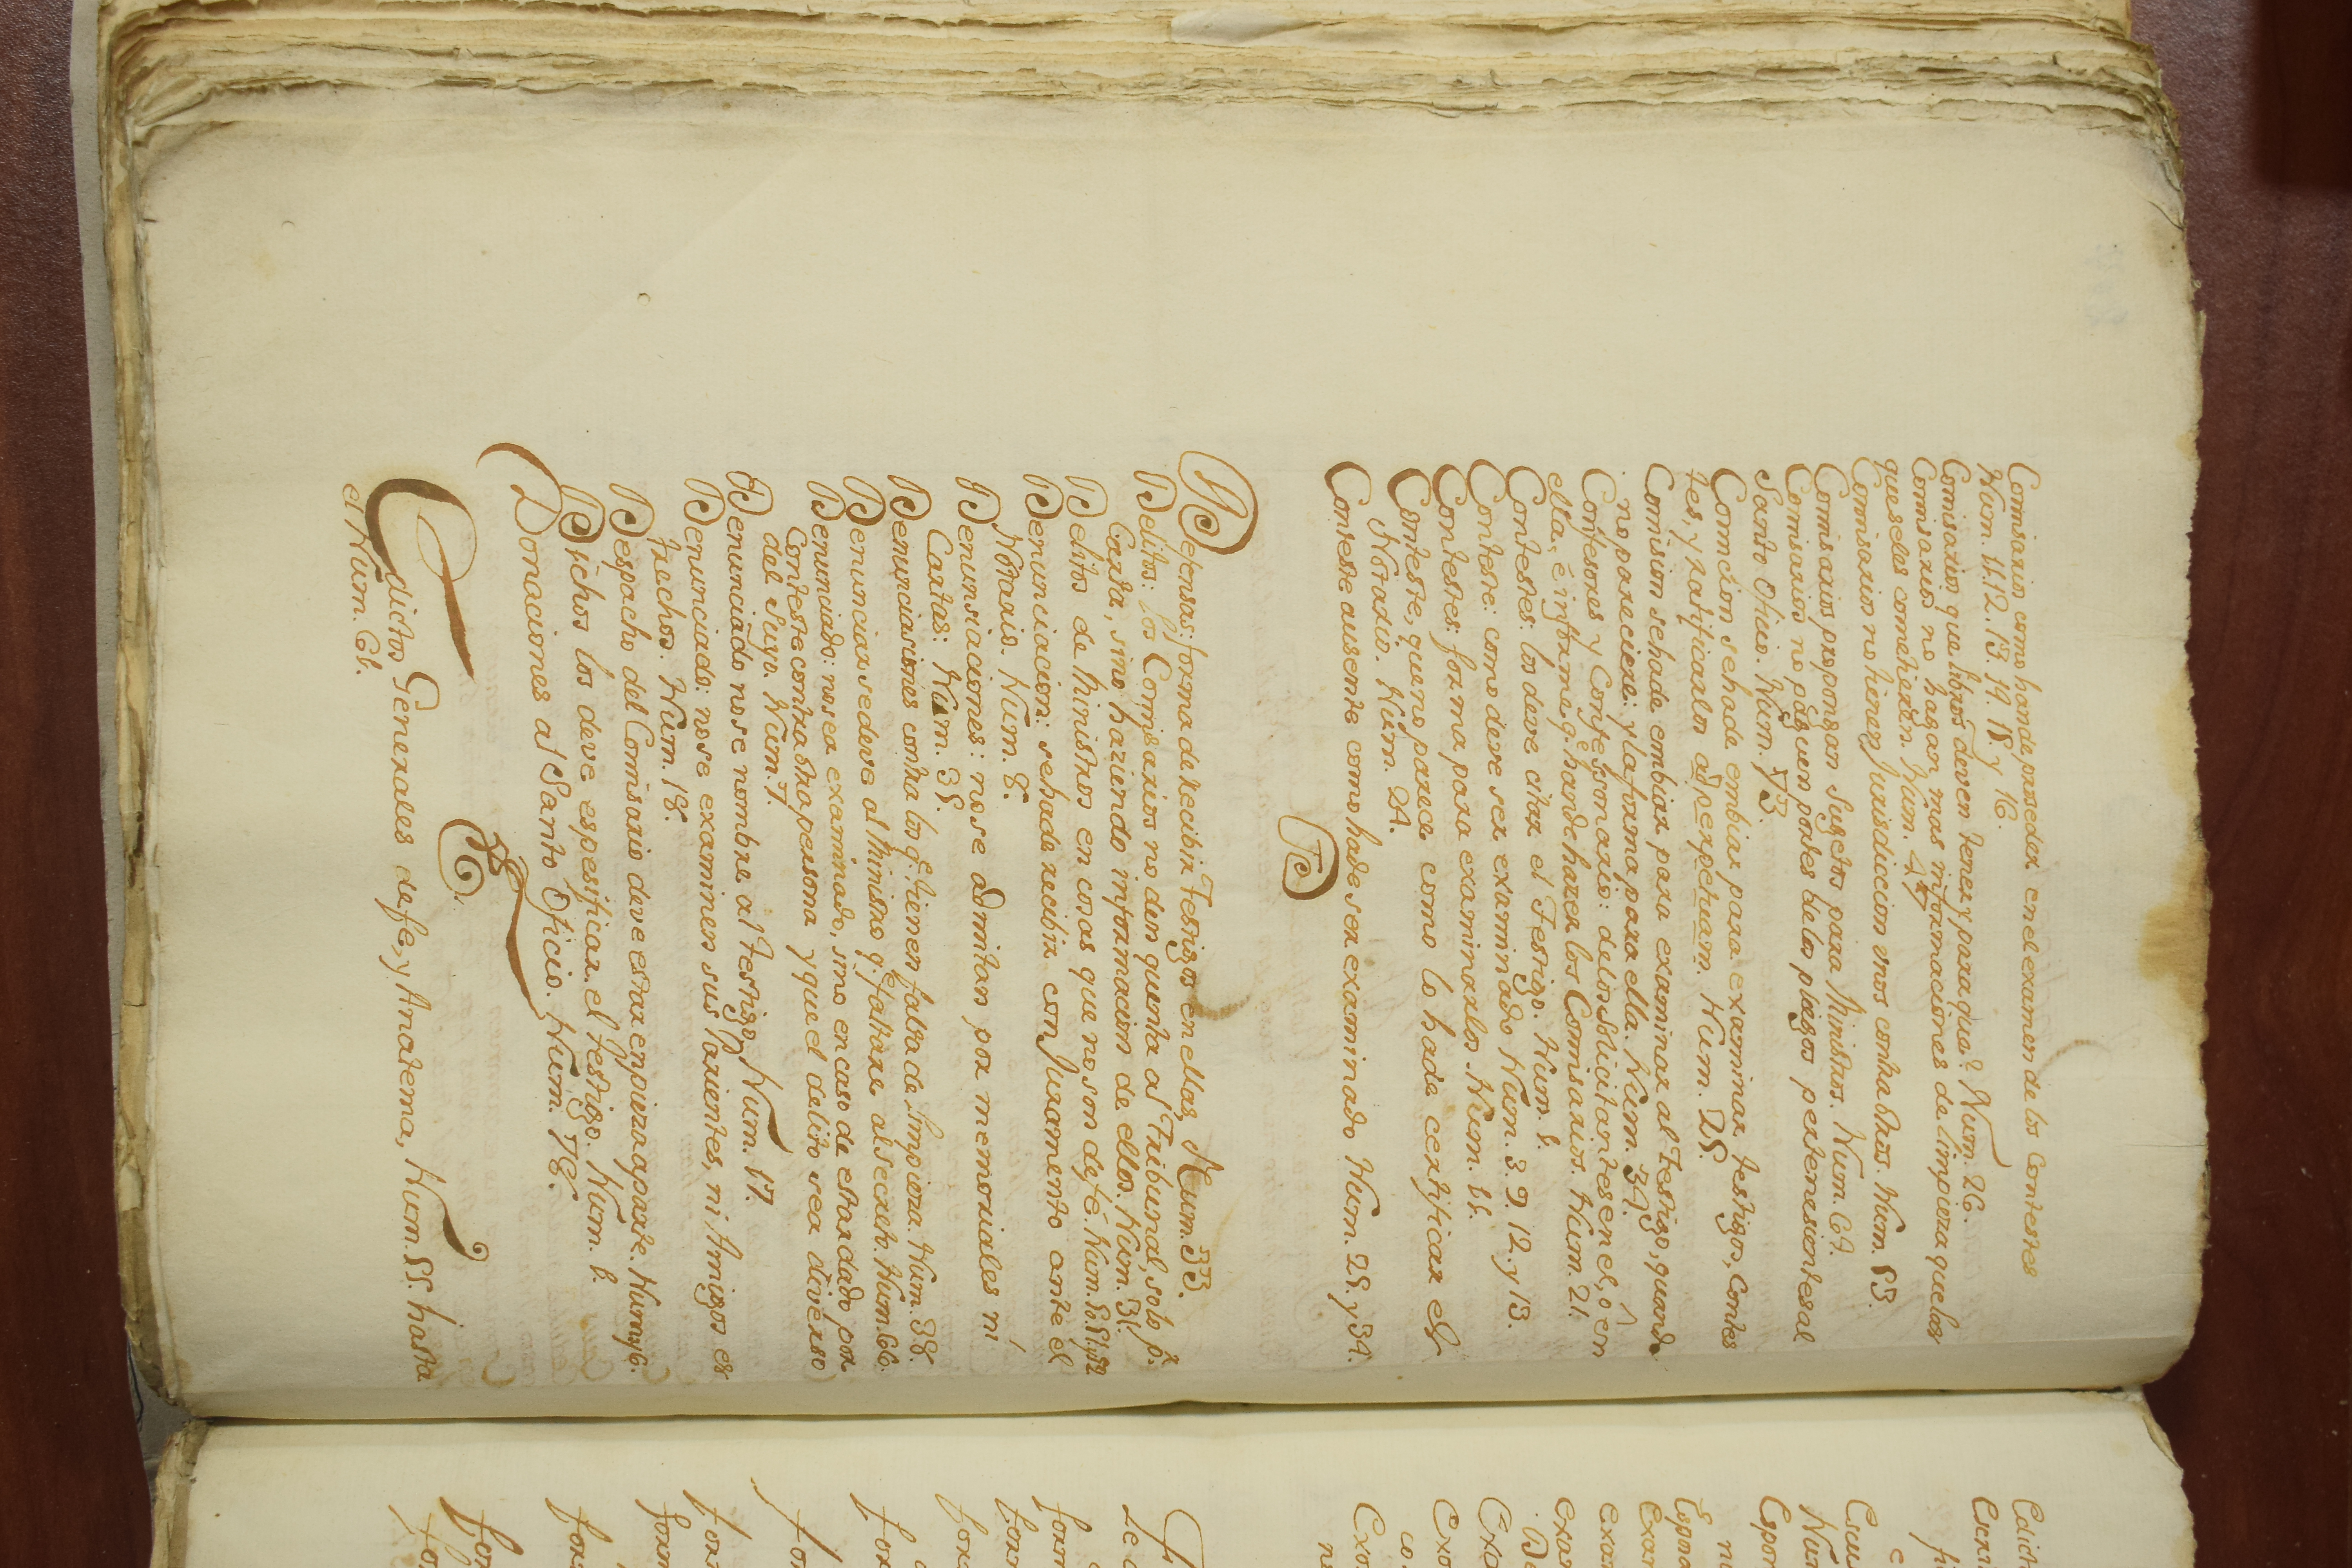 Comisarios como hande proseder en el examen de los contestes
Num. 11. 12. 13. 14. 15. y 16.
Comisarios que libros deven tener y para que? Num. 26.
Comisarios no hagan mas informaciones de limpieza quelas
que seles cometieren. Num. 47
Comisarios no tienen Jurisdiccion vnos contra otros. Num. 53.
Comisarios propongan Sugetos para Ministros. Num. 67.
Comisarios no paguen portes de los pliegos pertenesientes al
Santo Ofisio. Num. 73.
Comicion sehade embiar para examinar testigos, Contes
tes, y ratificarlos ad perpetuam. Num. 25.
Comision sehade embiar para examinar al Testigo, quando
no pareciere: y la forma para ella. Num. 34.
Confesores y Confessonario: delos Solicitantes en el, o en
ella, è informe q. hande hazer los Comisarios. Num. 21.
Contestes: los deve citar el Testigo. Num. 6.
Conteste: como deve ser examinado Num. 3. 9. 12. y 13.
Contestes: forma para examinarlos. Num. 11.
Conteste, que no parece como lo hade certificar el
Notario. Num. 24.
Conteste ausente como hade ser examinado Num. 25. y 34.
D
Defensas: forma de recibir Testigos en ellas, Num. 33.
Delitos: los Comisarios no den quenta al Tribunal, solo p.
Carta, sino haziendo informacion de ellos. Num. 31.
Delitos de Ministros en cosas que no son de fé. Num.
Denunciacion: sehade recibir con Juramento ante el
Notario. Num. 8.
Denunsiaciones: no se admitan por memoriales ni
Cartas: Num. 35.
Denunciasiones contra los q. tienen falta de limpieza. Num. 38.
Denunciar se deve al Ministro q. faltare al secreto. Num. 66.
Denunciado: no sea examinado, sino en caso de estar dado por
Conteste contra otra persona y que el delito sea diverso
del Suyo. Num. 7.
Denunciado no se nombre al testigo, Num. 17.
Denunciado: no se examinen sus Parientes, ni Amigos es
trechos. Num. 18.
Despacho del Comisario deve estar en pieza aparte. Num. 76.
Dichos los deve espesificar el testigo. Num. 6.
Donaciones al Santo Oficio. Num. 78.
E.
Edictos Generales de fe, y Anatema, Num. 55. hasta
el Num. 61.